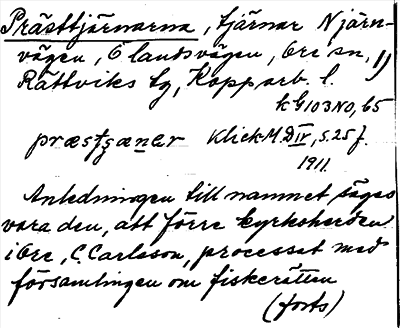 Prästtjärnarna, tjärnar N järn-
vägen, Ö landsvägen, Ore sn, 1)
Rättviks tg, Kopparb. l.
kG103NO, 65
præstʒæner Klick-M. D IV, s. 25 f.
1911.
Anledningen till namnet säges
vara den, att förre kyrkoherden
i Ore, C. Carlsson, processat med
församlingen om fiskerätten
(forts)